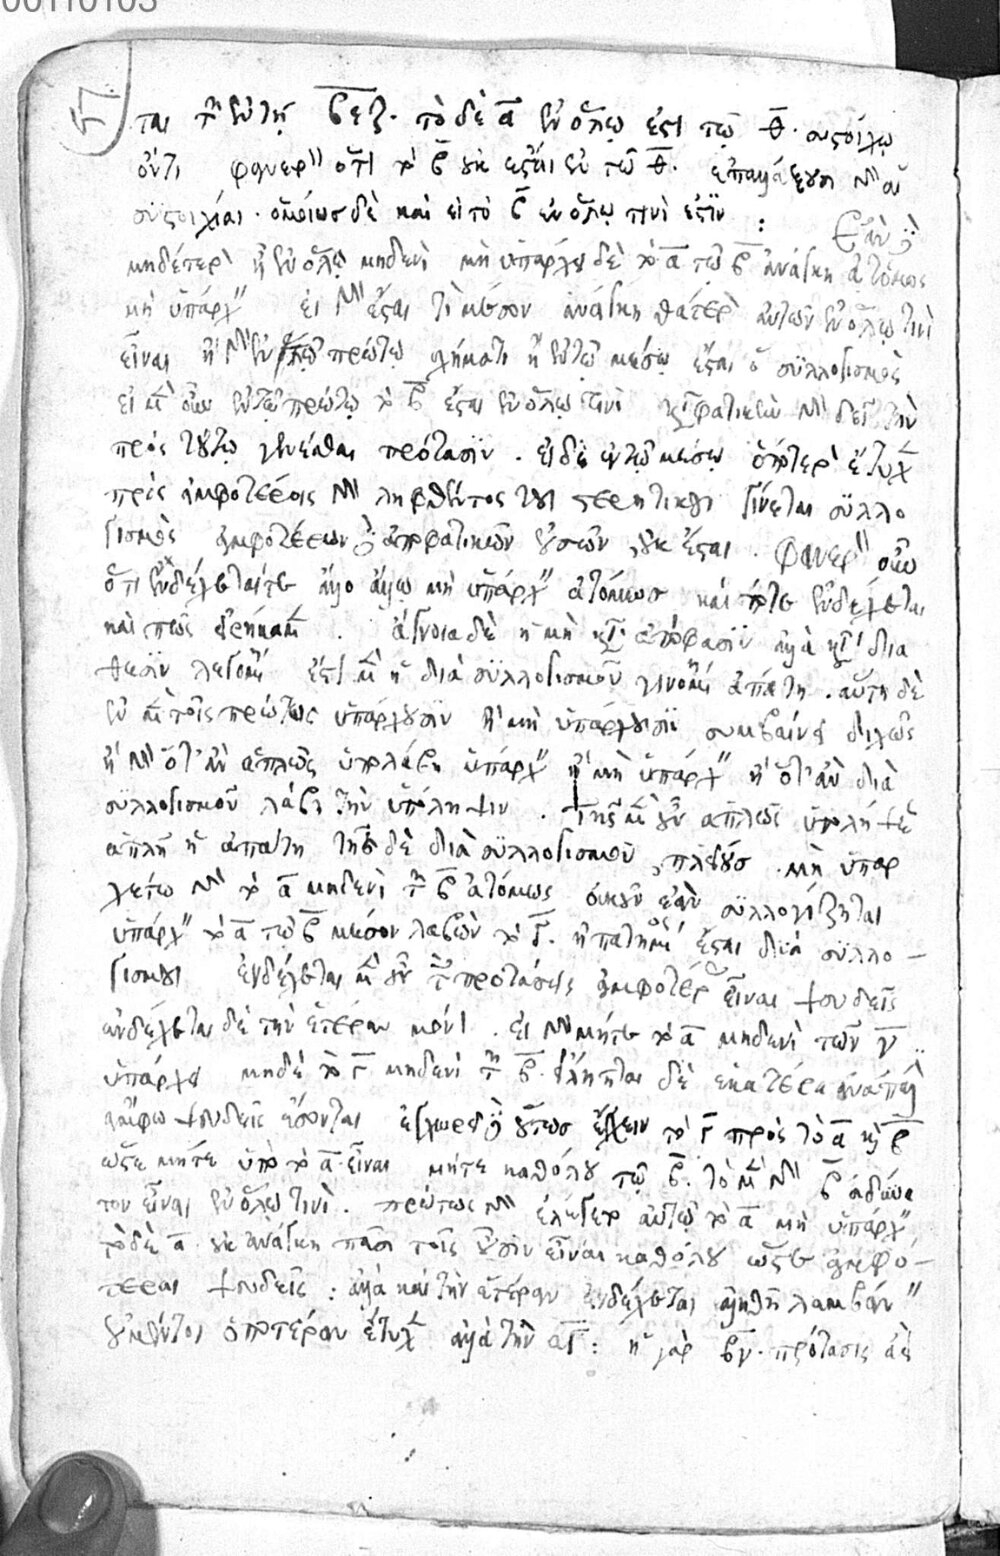 ται τῇ ἐν τῇ βεζ. τὸ δὲ α ἐν ὅλῳ ἐστὶ τῷ θ. συστοίχῳ
ὄντι φανερὸν ὅτι τὸ β οὐκ ἔσται ἐν τῷ θ. ἐπαλλάξουσι γὰρ αἱ
συστοιχίαι. ὁμοίως δὲ καὶ εἰ τὸ β ἐν ὅλῳ τινὶ ἐστὶν : Ἐὰν δὲ
μηδέτερον ᾖ ἐν ὅλῳ μηδενὶ μὴ ὑπάρχῃ δὲ τὸ α τῷ β ἀνάγκη ἀτόμως
μὴ ὑπάρχειν εἰ γὰρ ἔσται τι μέσον ἀνάγκη θάτερον αὐτῶν ἐν ὅλῳ τινὶ
εἶναι ἢ γὰρ ἐν τῷ πρώτῳ σχήματι ἢ ἐν τῷ μέσῳ ἔσται ὁ συλλογισμὸς
εἰ μὲν οὖν ἐν τῷ πρώτῳ τὸ β ἔσται ἐν ὅλῳ τινὶ καταφατικὴν γὰρ δεῖ τὴν
πρὸς τούτῳ γενέσθαι πρότασιν. εἰ δὲ ἐν τῷ μέσῳ ὁπότερον ἔτυχε
πρὸς ἀμφοτέροις γὰρ ληφθέντος τοῦ στερητικοῦ γίνεται συλλο
γισμὸς ἀμφοτέρων δὲ ἀποφατικῶν οὐσῶν οὐκ ἔσται. φανερὸν οὖν
ὅτι ἐνδέχεταί τε ἄλλο ἄλλῳ μὴ ὑπάρχειν ἀτόμως καὶ πότε ἐνδέχεται
καὶ πῶς εἰρήκαμεν. ἄγνοια δὲ ἡ μὴ κατὰ ἀπόφασιν ἀλλὰ κατὰ διά
θεσιν λεγομένη ἐστὶ μὲν ἡ διὰ συλλογισμοῦ γινομένη ἀπάτη. αὕτη δὲ
ἐν μὲν τοῖς πρώτως ὑπάρχουσιν ἢ μὴ ὑπάρχουσι συμβαίνει διχῶς
ἢ γὰρ ὅταν ἁπλῶς ὑπολάβῃ ὑπάρχειν ἢ μὴ ὑπάρχειν ἢ ὅταν διὰ
συλλογισμοῦ λάβῃ τὴν ὑπόληψιν. τῆς μὲν οὖν ἁπλῶς ὑπολήψεως
ἁπλῆ ἡ ἀπάτη τῆς δὲ διὰ συλλογισμοῦ πλείους. μὴ ὑπαρ
χέτω γὰρ τὸ α μηδενὶ τῶν β ἀτόμως οὐκοῦν ἐὰν συλλογίζηται
ὑπάρχειν τὸ α τῷ β μέσον λαβὼν τὸ γ. ἠπατημένος ἔσται διὰ συλλο-
γισμοῦ ἐνδέχεται μὲν οὖν τὰς προτάσεις ἀμφοτέρας εἶναι ψευδεῖς
ἐνδέχεται δὲ τὴν ἑτέραν μόνην. εἰ γὰρ μήτε τὸ α μηδενὶ τῶν γ
ὑπάρχει μηδὲ τὸ γ μηδενὶ τῶν β. εἴληπται δὲ ἑκατέρα ἀνάπαλιν
ἄμφω ψευδεῖς ἔσονται ἐγχωρεῖ δὲ οὕτως ἔχειν τὸ γ πρὸς τὸ α καὶ β
ὥστε μήτε ὑπὸ τὸ α εἶναι μήτε καθόλου τῷ β. τὸ μὲν γὰρ β ἀδύνα
τον εἶναι ἐν ὅλῳ τινὶ. πρώτως γὰρ ἐλέγετο αὐτῷ τὸ α μὴ ὑπάρχειν
τὸ δὲ α οὐκ ἀνάγκη πᾶσι τοῖς οὖσιν εἶναι καθόλου ὥστε ἀμφό-
τεραι ψευδεῖς : ἀλλὰ καὶ τὴν ἑτέραν ἐνδέχεται ἀληθῆ λαμβάνειν
οὐ μέντοι ὁποτέραν ἔτυχε ἀλλὰ τὴν αγ : ἡ γὰρ βγ. πρότασις ἀεὶ